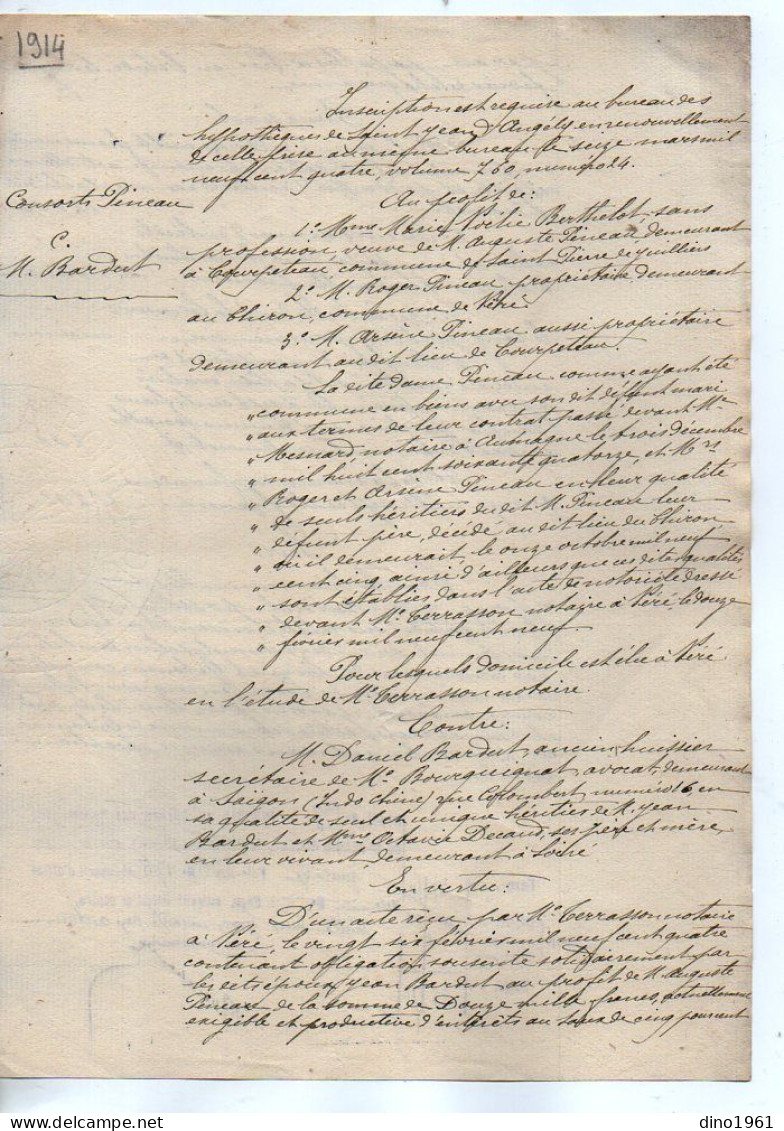 1914
Inscription est requise au bureau des
hypothèques de Saint Jean d'Angély en renouvellement
de celle prise au même bureau le seize mars mil
neuf cent quatre, volume 760, numéro 24.
Consorts Pineau
C.
M. Bardut
Au profit de:
1° Mme Marie Noélie Berthelot, sans
profession, veuve de M. Auguste Pineau, demeurant
à Courpeteau, commune de Saint Pierre de Juilliers
2° M. Roger Pineau, propriétaire, demeurant
au Chiron, commune de Néré.
3° M. Arsène Pineau aussi propriétaire
demeurant audit lieu de Courpeteau.
La dite dame Pineau comme ayant été
" commune en biens avec son dit défunt mari
" aux termes de leur contrat passé devant Me
" Mesnard notaire à Aumagne le trois décembre
" mil huit cent soixante quatorze, et Mrs
" Roger et Arsène Pineau en leur qualité
" de seuls héritiers du dit M. Pineau leur
" défunt père, décédé au dit lieu du Chiron,
" où il demeurait le onze octobre mil neuf
" cent cinq ainsi d'ailleurs que ces dites qualités
" sont établies dans l'acte de notoriété dressé
" devant Me Terrasson notaire à Néré, le douze
" février mil neuf cent neuf.
Pour lesquels domicile est élu à Néré
en l'étude de Me Terrasson notaire.
Contre:
M. Daniel Bardut, ancien huissier
secrétaire de Me Bourguignat, avocat, demeurant
à Saïgon (Indo Chine) rue Colombert, numéro 16, en
sa qualité de seul et unique héritier de M. Jean
Bardut et Mme Octavie Decaud, ses père et mère,
en leur vivant demeurant à Loiré
En vertu:
D'un acte reçu par Me Terrasson notaire
à Néré, le vingt six février mil neuf cent quatre
contenant obligation souscrite solidairement par
les dits époux Jean Bardut au profit de M. Auguste
Pineau de la somme de Douze mille francs, actuellement
exigible et productive d'intérêts au taux de cinq pour cent
dino1961